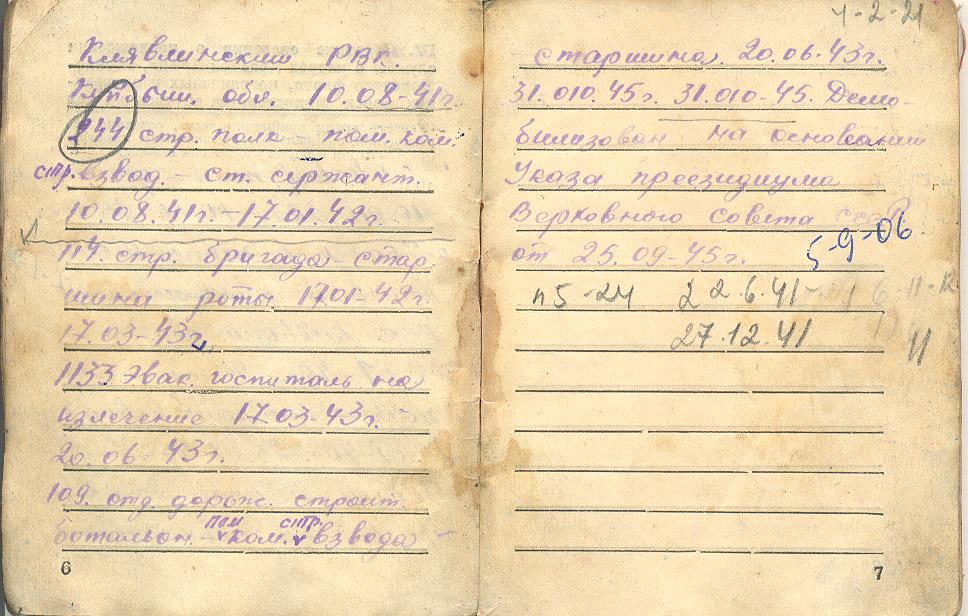 Клявлинский РВК.
Куйбыш. обл. 10.08-41г.
244 стр. полк – пом. ком.
стр. взвод. – ст. сержант.
10.08.41г. – 17.01.42г.
114. стр. бригада – стар
шина роты 17.01-42г.
17.03-43г.
1133 Эвак. госпиталь на
излечение 17.03-43г.
20.06-43г.
109. отд. дорож. строит.
батальон. – пом ком. стр. взвода –
6
1-2-21
– старшина. 20.06.43г.
31.010.45г. 31.010-45. Демо-
билизован на основании
Указа преезидиума
Верховного совета СССР.
от 25.09-45г.
5-9-06
п5-24 22.6.41-
6-11-12
27.12.41
11
7